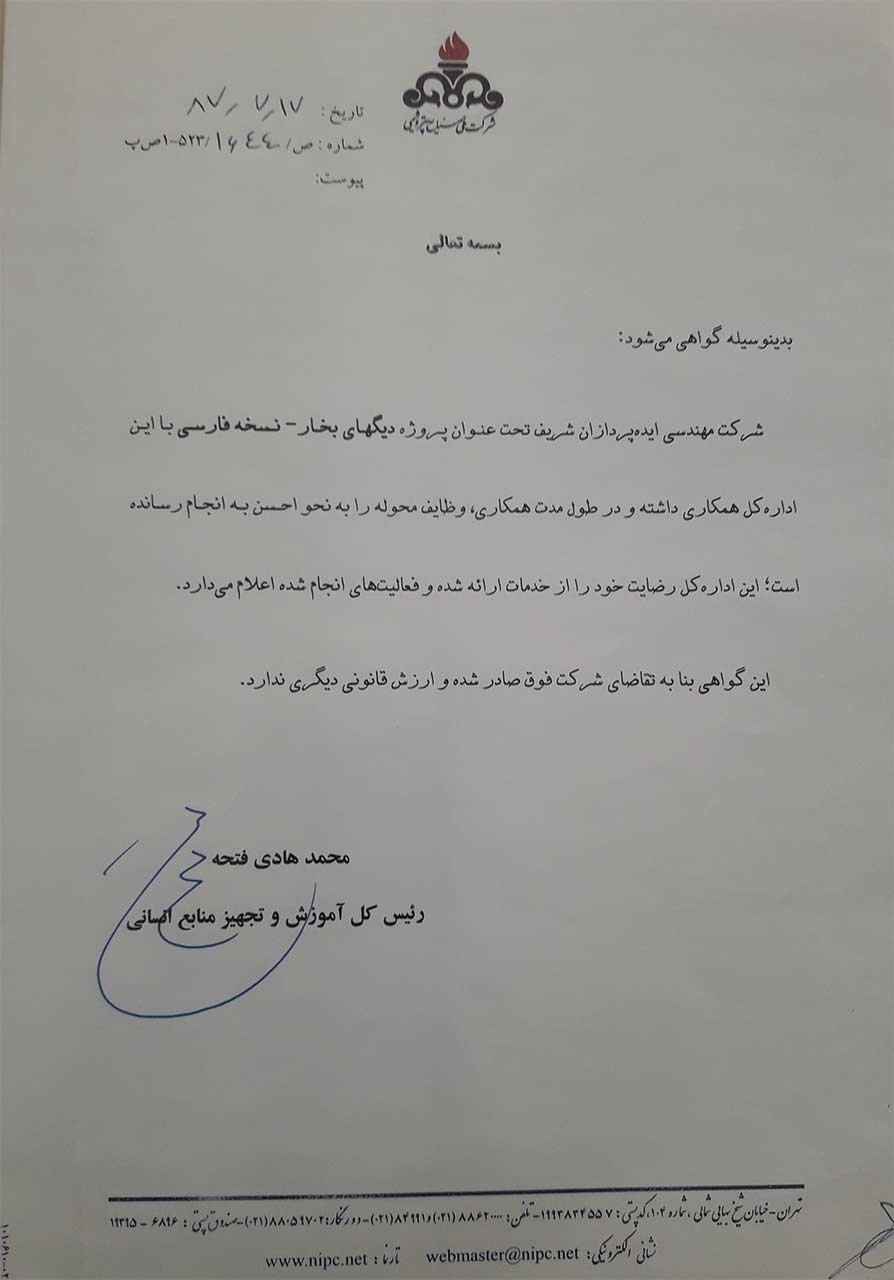 شرکت ملی صنایع پتروشیمی
تاریخ: ۸۷/۷/۱۷
شماره: ص/۱۶۴۴۰/۵۲۳-۱ص‌پ
پیوست:
بسمه تعالی
بدینوسیله گواهی می‌شود:
شرکت مهندسی ایده‌پردازان شریف تحت عنوان پروژه دیگهای بخار- نسخه فارسی با این
اداره‌کل همکاری داشته و در طول مدت همکاری، وظایف محوله را به نحو احسن به انجام رسانده
است؛ این اداره‌کل رضایت خود را از خدمات ارائه شده و فعالیت‌های انجام شده اعلام می‌دارد.
این گواهی بنا به تقاضای شرکت فوق صادر شده و ارزش قانونی دیگری ندارد.
محمد هادی فتحه
رئیس کل آموزش و تجهیز منابع انسانی
تهران-خیابان شیخ بهایی شمالی، شماره ۱۰۴، کدپستی: ۱۹۹۳۸۳۴۵۵۷-تلفن: ۸۸۶۲۰۰۰۰(۰۲۱)و۸۴۹۹۱(۰۲۱)-دورنگار: ۸۸۰۵۹۷۰۲(۰۲۱)-صندوق پستی: ۶۸۹۶ - ۱۹۳۹۵
نشانی الکترونیکی: webmaster@nipc.net تارنما: www.nipc.net